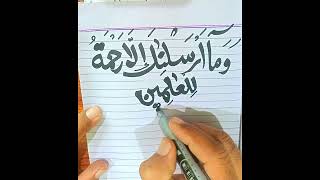 وَمَا أَرْسَلْنٰكَ اِلَّا رَحْمَةً
لِلْعٰلَمِين